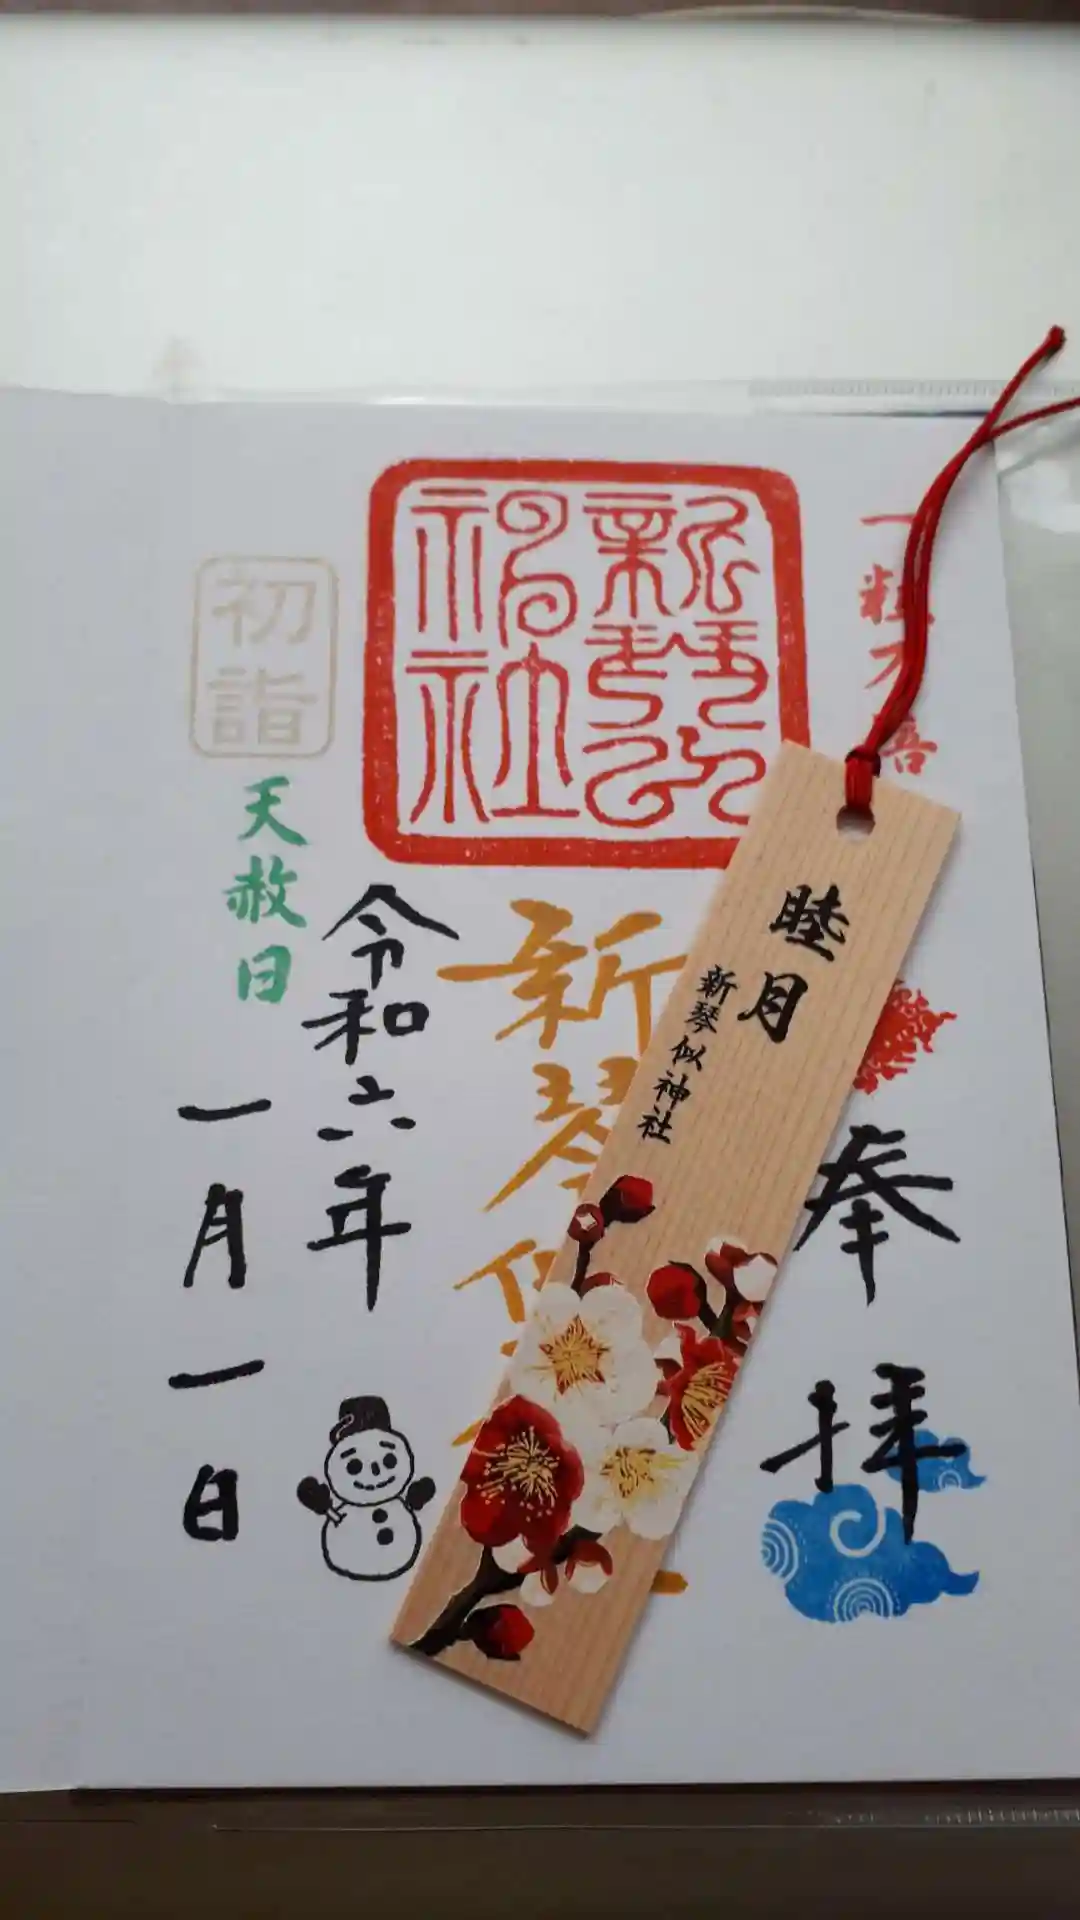 一粒万倍
奉拝
新琴似神社
新琴似
令和六年
一月一日
初詣
天赦日
睦月
新琴似神社